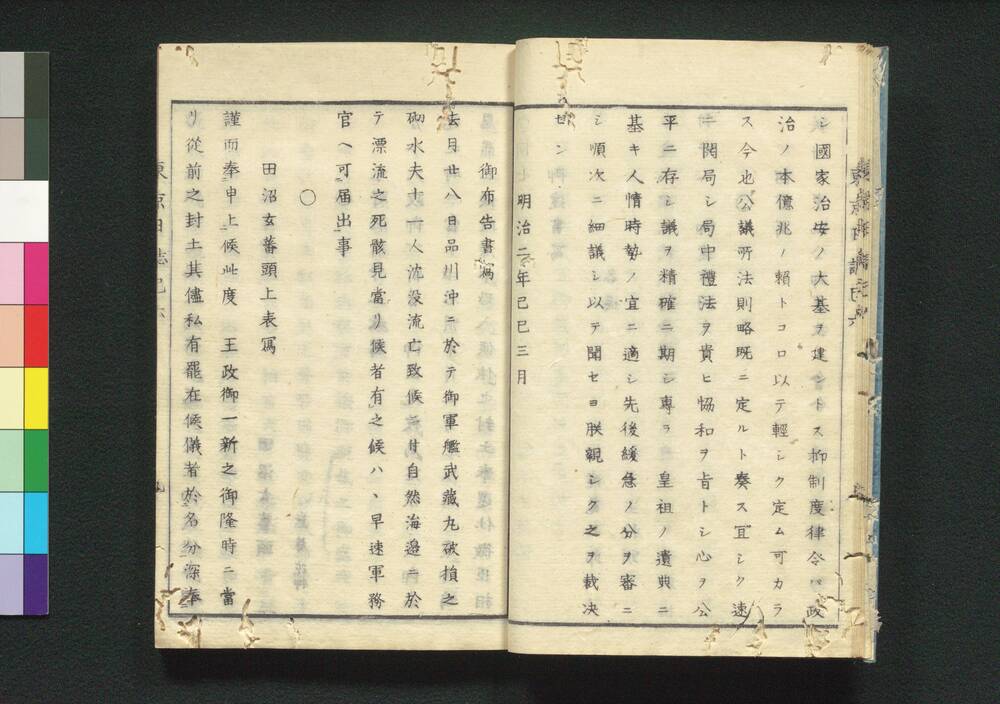 シ國家治安ノ大基ヲ建ントス抑制度律令ハ政
治ノ本億兆ノ頼トコロ以テ輕シク定ム可カラ
ス今也公議所法則略既ニ定ルト奏ス宜シク速
ニ開局シ局中禮法ヲ貴ヒ恊和ヲ旨トシ心ヲ公
平ニ存シ議ヲ精確ニ期シ専ラ皇祖ノ遺典ニ
基キ人情時勢ノ宜ニ適シ先後緩急ノ分ヲ審ニ
シ順次ニ細議シ以テ聞セヨ朕親シク之ヲ裁决
セン
明治二年己巳三月
御布告書寫
去月廿八日品川沖ニ於テ御軍艦武藏丸破損之
砌水夫十一人沈没流亡致候ニ付自然海邉ニ於
テ漂流之死骸見當リ候者有之候ハ、早速軍務
官ヘ可届出事
〇
田沼玄蕃頭上表寫
謹而奉申上候此度王政御一新之御隆時ニ當
リ從前之封土其儘私有罷在候儀者於名分深奉
東京日誌己六